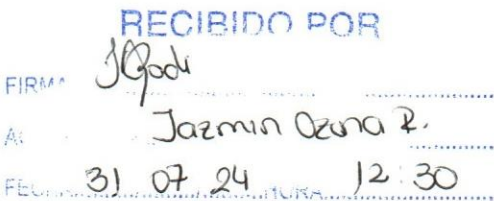 RECIBIDO POR
FIRMA
Jazmin Ozuna R.
31 07 24 HORA 12:30